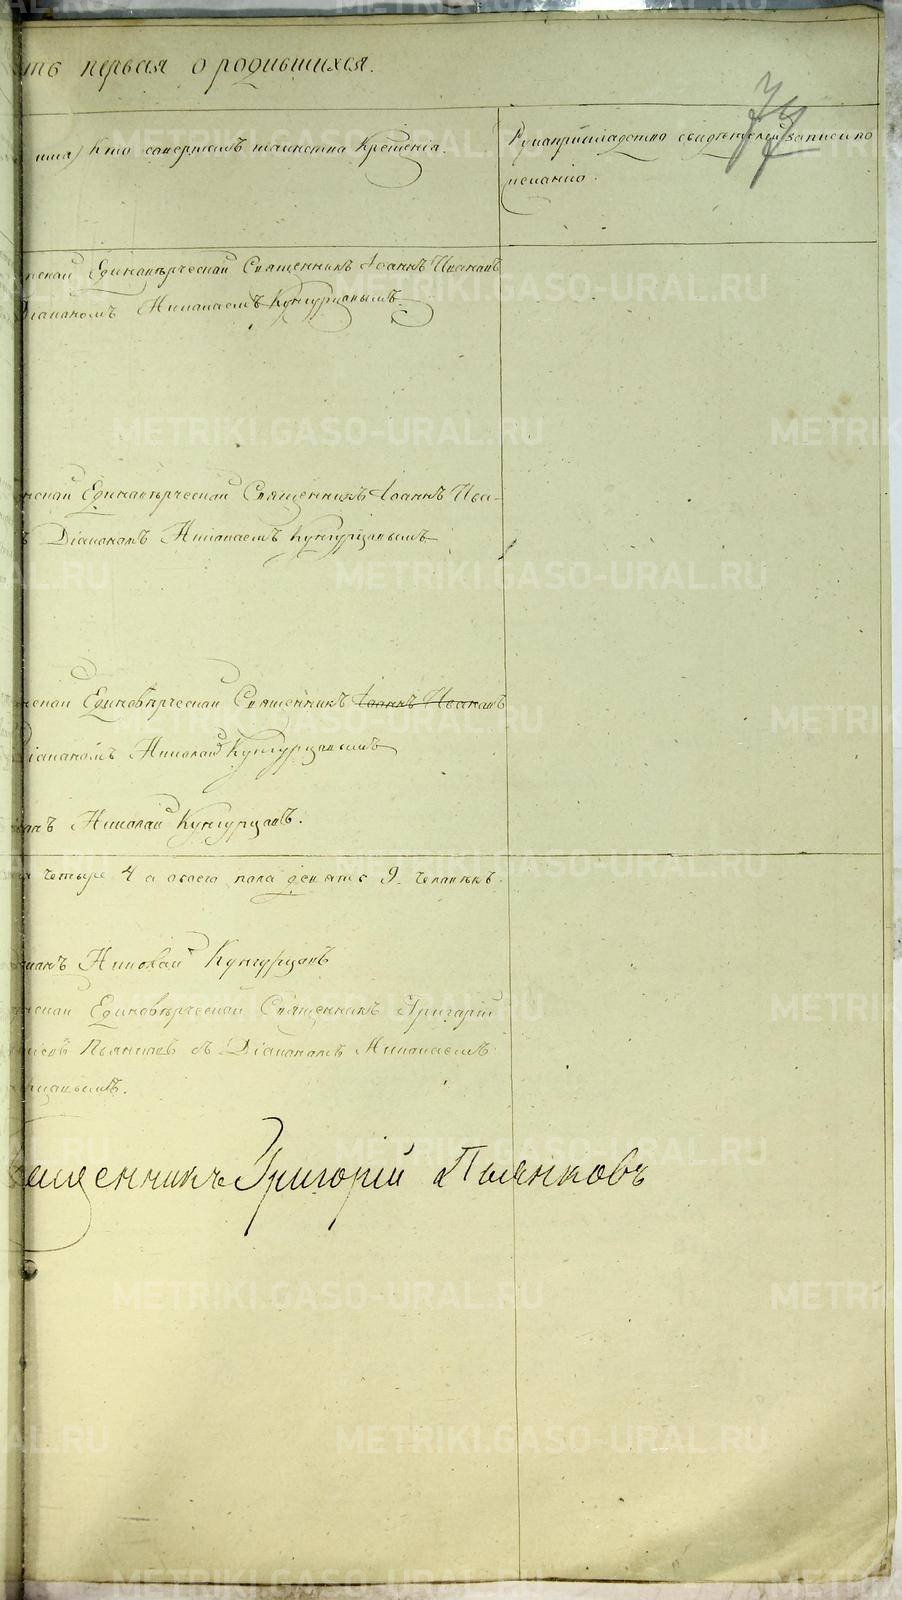 ть первая о родившихся.
74
Кто совершалъ таинство Крещенія.
Рукоприкладство свидѣтелей записи по
желанію.
Единовѣрческой Священникъ Іоаннъ Ивановъ
Діакономъ Николаемъ Кунгурцовымъ
Единовѣрческой Священникъ Іоаннъ Ива-
Діакономъ Николаемъ Кунгурцовымъ
Единовѣрческой Священникъ Іоаннъ Ивановъ
Діакономъ Николай Кунгурцовымъ
Николай Кунгурцовъ.
четыре 4 а обоего пола девять 9. человѣкъ.
Николай Кунгурцовъ
Единовѣрческой Священникъ Григорій
Пьянковъ съ Діакономъ Николаемъ
священникъ Григорій Пьянковъ
METRIKI.GASO-URAL.RU